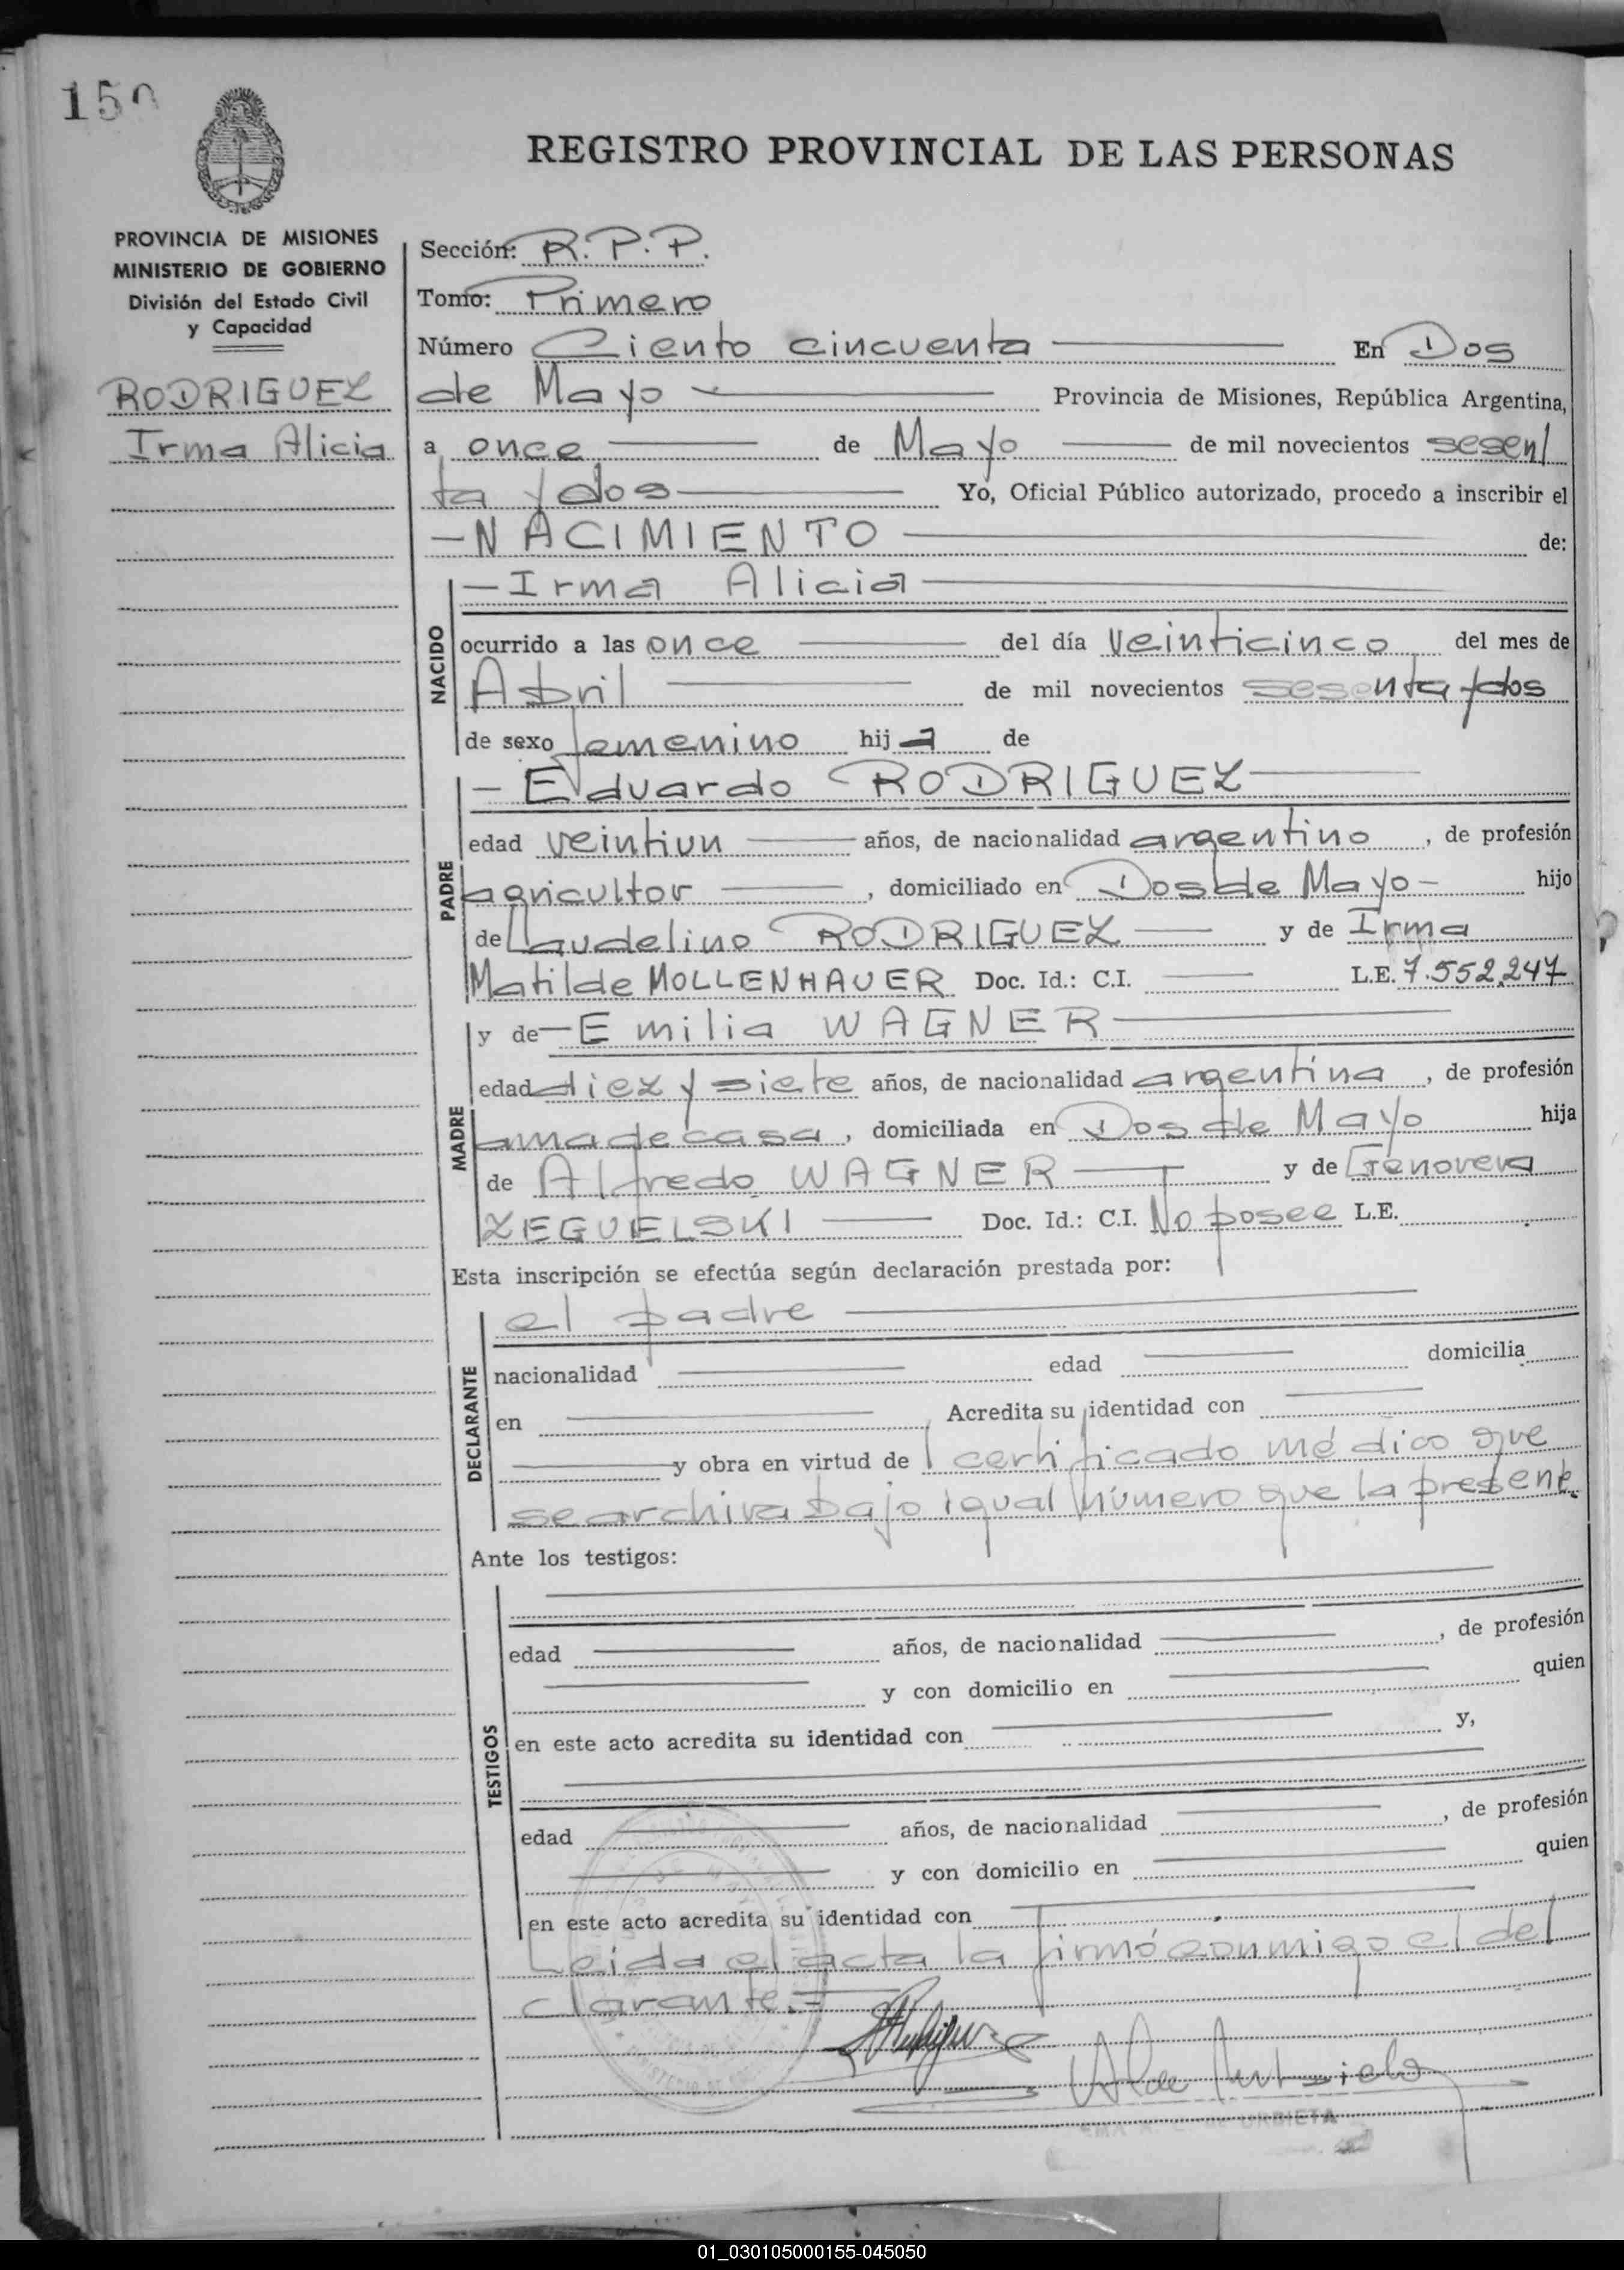 150
REGISTRO PROVINCIAL DE LAS PERSONAS
PROVINCIA DE MISIONES
MINISTERIO DE GOBIERNO
División del Estado Civil
y Capacidad
RODRIGUEZ
Irma Alicia
Sección: R.P.P.
Tomo: Primero
Número Ciento cincuenta En Dos
de Mayo Provincia de Misiones, República Argentina,
a once de Mayo de mil novecientos sesen/
ta y dos Yo, Oficial Público autorizado, procedo a inscribir el
-NACIMIENTO de:
NACIDO
-Irma Alicia
ocurrido a las once del día veinticinco del mes de
Abril de mil novecientos sesenta y dos
de sexo femenino hija de
PADRE
-Eduardo RODRIGUEZ
edad veintiun años, de nacionalidad argentino, de profesión
agricultor, domiciliado en Dos de Mayo- hijo
de Laudelino RODRIGUEZ y de Irma
Matilde MOLLENHAUER Doc. Id.: C.I. L.E. 7.552.247
MADRE
y de -Emilia WAGNER
edad diez y siete años, de nacionalidad argentina, de profesión
ama de casa, domiciliada en Dos de Mayo hija
de Alfredo WAGNER y de Genoveva
ZEGUELSKI Doc. Id.: C.I. No posee L.E.
Esta inscripción se efectúa según declaración prestada por:
DECLARANTE
el padre
nacionalidad edad domicilia
en Acredita su identidad con
y obra en virtud de l certificado médico que
se archiva bajo igual número que la presente.
Ante los testigos:
TESTIGOS
edad años, de nacionalidad , de profesión
y con domicilio en quien
en este acto acredita su identidad con y,
edad años, de nacionalidad , de profesión
y con domicilio en quien
en este acto acredita su identidad con
Leida el acta la firmó conmigo el de/
clarante.=
URBIETA
01_030105000155-045050